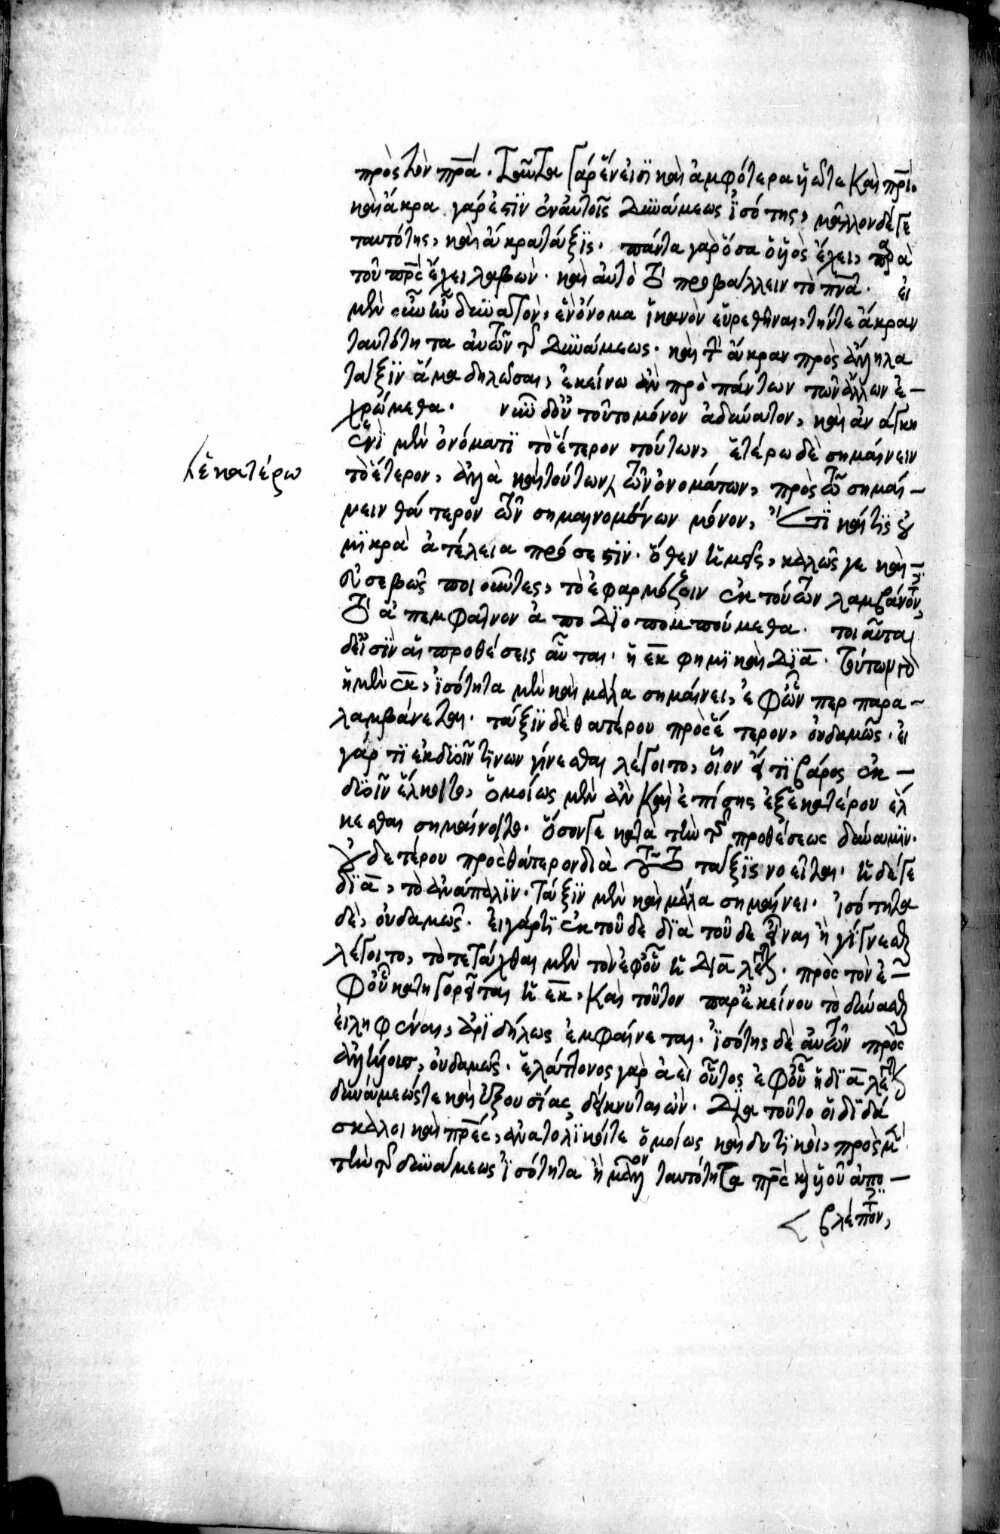 πρὸς τὸν πρ̅α. ταῦτα γὰρ ἕν εἰσι καὶ ἀμφότερα ἥ τε καὶ πρὶ.
καὶ ἄκρα γάρ ἐστιν ἐν αὐτοῖς δυνάμεως ἰσότης, μᾶλλον δέ γε
ταυτότης, καὶ ἄκρα τάξις. πάντα γὰρ ὅσα ὁ υἱὸς ἔχει, παρὰ
τοῦ πρ̅ς ἔχει λαβών. καὶ αὐτὸ τὸ προβάλλειν τὸ πν̅α. εἰ
μὲν οὖν ἦν δυνατὸν, ἓν ὄνομα ἱκανὸν εὑρεθῆναι, τήν τε ἄκραν
ταυτότητα αὐτῶν τῆς δυνάμεως. καὶ τὴν ἄκραν πρὸς ἄλληλα
τάξιν ἅμα δηλῶσαι, ἐκείνω ἂν πρὸ πάντων τῶν ἄλλων ἐ-
χρώμεθα. νῦν δ' οὖν τοῦτο μόνον ἀδύνατον, καὶ ἀνάγκη
ἑνὶ μὲν ὀνόματι τὸ ἕτερον τούτων, ἑτέρω δὲ σημαίνειν
τὸ ἕτερον, ἀλλὰ καὶ τούτων τῶν ὀνομάτων, πρὸς τῶ σημαί-
ἑκατέρω
νειν θάτερον τῶν σημαινομένων μόνον, ἔτι καί τις οὐ
μικρὰ ἀτέλεια πρόσεστιν. ὅθεν ἡμεῖς, καλῶς γε καὶ
εὐσεβῶς ποιοῦντες, τὸ ἐφαρμόζοιν ἐκ τούτων λαμβάνοντες,
τὸ ἀπεμφαῖνον ἀποδιοπομπούμεθα. τοιαῦται
δ' εἰσὶν αἱ προθέσεις αὗται. ἡ ἐκ φημὶ καὶ διὰ. τούτων γὰρ
ἡ μὲν ἐκ, ἰσότητα μὲν καὶ μάλα σημαίνει, ἐφ' ὧν περ παρα-
λαμβάνεται. τάξιν δὲ θατέρου πρὸς ἕτερον, οὐδαμῶς. εἰ
γάρ τι ἐκ δυοῖν τινων γίνεσθαι λέγοιτο, οἷον εἴ τι βάρος ἐκ
δυοῖν ἕλκοιτο, ὁμοίως μὲν ἂν καὶ ἐπίσης ἐξ ἑκατέρου ἕλ
κεσθαι σημαίνοιτο. ὅσον γε κατὰ τὴν τῆς προθέσεως δύναμιν.
οὐδετέρου πρὸς θάτερον διὰ τάξις νοεῖται. ἡ δέ γε
διὰ, τὸ ἀνάπαλιν. τάξιν μὲν καὶ μάλα σημαίνει. ἰσότητα
δὲ, οὐδαμῶς. εἰ γάρ τι ἐκ τοῦδε διὰ τοῦδε εἶναι ἢ γίγνεσθαι
λέγοιτο, τὸ τετάχθαι μὲν τὸν ἐφ' οὗ ἡ διὰ λέγεται. πρὸς τὸν ἐ-
φ' οὗ κατηγορεῖται ἡ ἐκ, καὶ τοῦτον παρ' ἐκείνου τὸ δύνασθαι
εἰληφέναι, ἀριδήλως ἐμφαίνεται. ἰσότης δὲ αὐτῶν πρὸς
ἀλλήλους, οὐδαμῶς. ἐλάττονος γὰρ ἀεὶ οὗτος ἐφ' οὗ ἡ διὰ λέγεται
δυνάμεώς τε καὶ ἐξουσίας δείκνυται ὤν. διὰ τοῦτο οἱ διδά
σκαλοι καὶ πρ̅ες, ἀνατολικοί τε ὁμοίως καὶ δυτικοὶ, πρὸς μὲν
τὴν τῆς δυνάμεως ἰσότητα ἢ μᾶλλον ταυτότητα πρ̅ς καὶ υἱοῦ ἀπο-
βλέποντες,